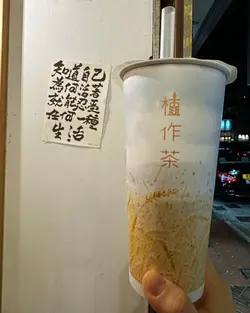 知道自己
為何活著
就能忍受
任何一種
生活
植作茶